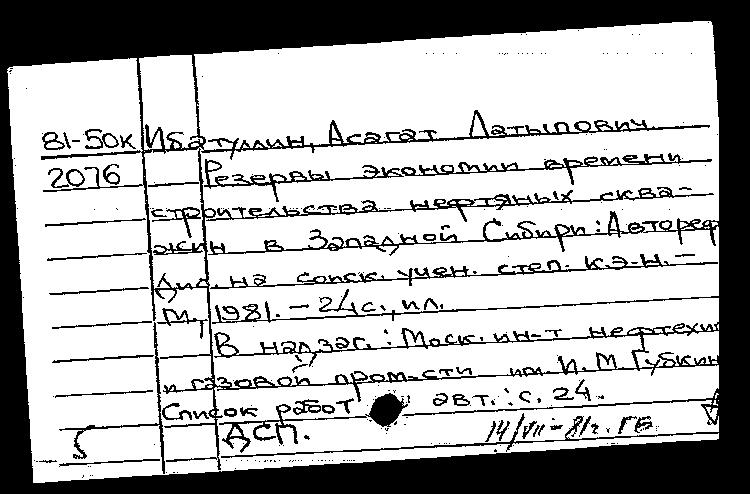 81-50к Ибатуллин, Асагат Латыпович
2076 Резервы экономии времени
строительства нефтяных сква-
жин в Западной Сибири: Автореф
дис. на соиск. учен. степ. к.э.н. –
М., 1981. – 24 с., ил.
В надзаг.: Моск. ин-т нефтехим
и газовой пром-сти им. И. М. Губкин
Список работ авт.: с. 24.
5 ДСП. 14/VII – 81г. ГБ